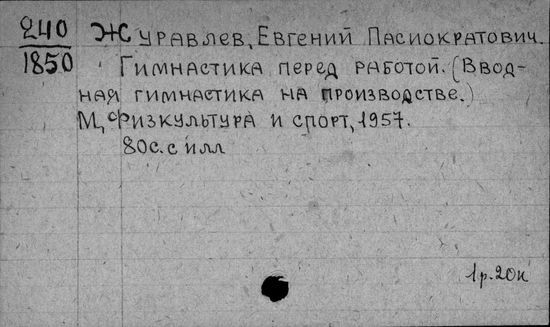 240
1850
Журавлев, Евгений Пасиократович.
Гимнастика перед работой. (Ввод-
ная гимнастика на производстве.)
М, Физкультура и спорт, 1957.
80с. с илл
1р. 20к